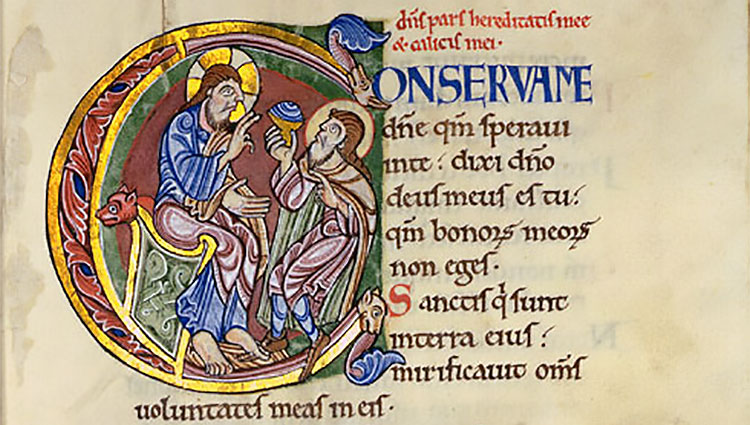 dn̄s pars hereditatis mee
& calicis mei.
CONSERVAME
dn̄e qm̄ speraui
inte: dixi dn̄o
deus meus es tu:
qm̄ bonoꝝ meoꝝ
non eges.
Sanctis q̇ sunt
interra eius:
mirificauit om̄s
voluntates meas in eis.